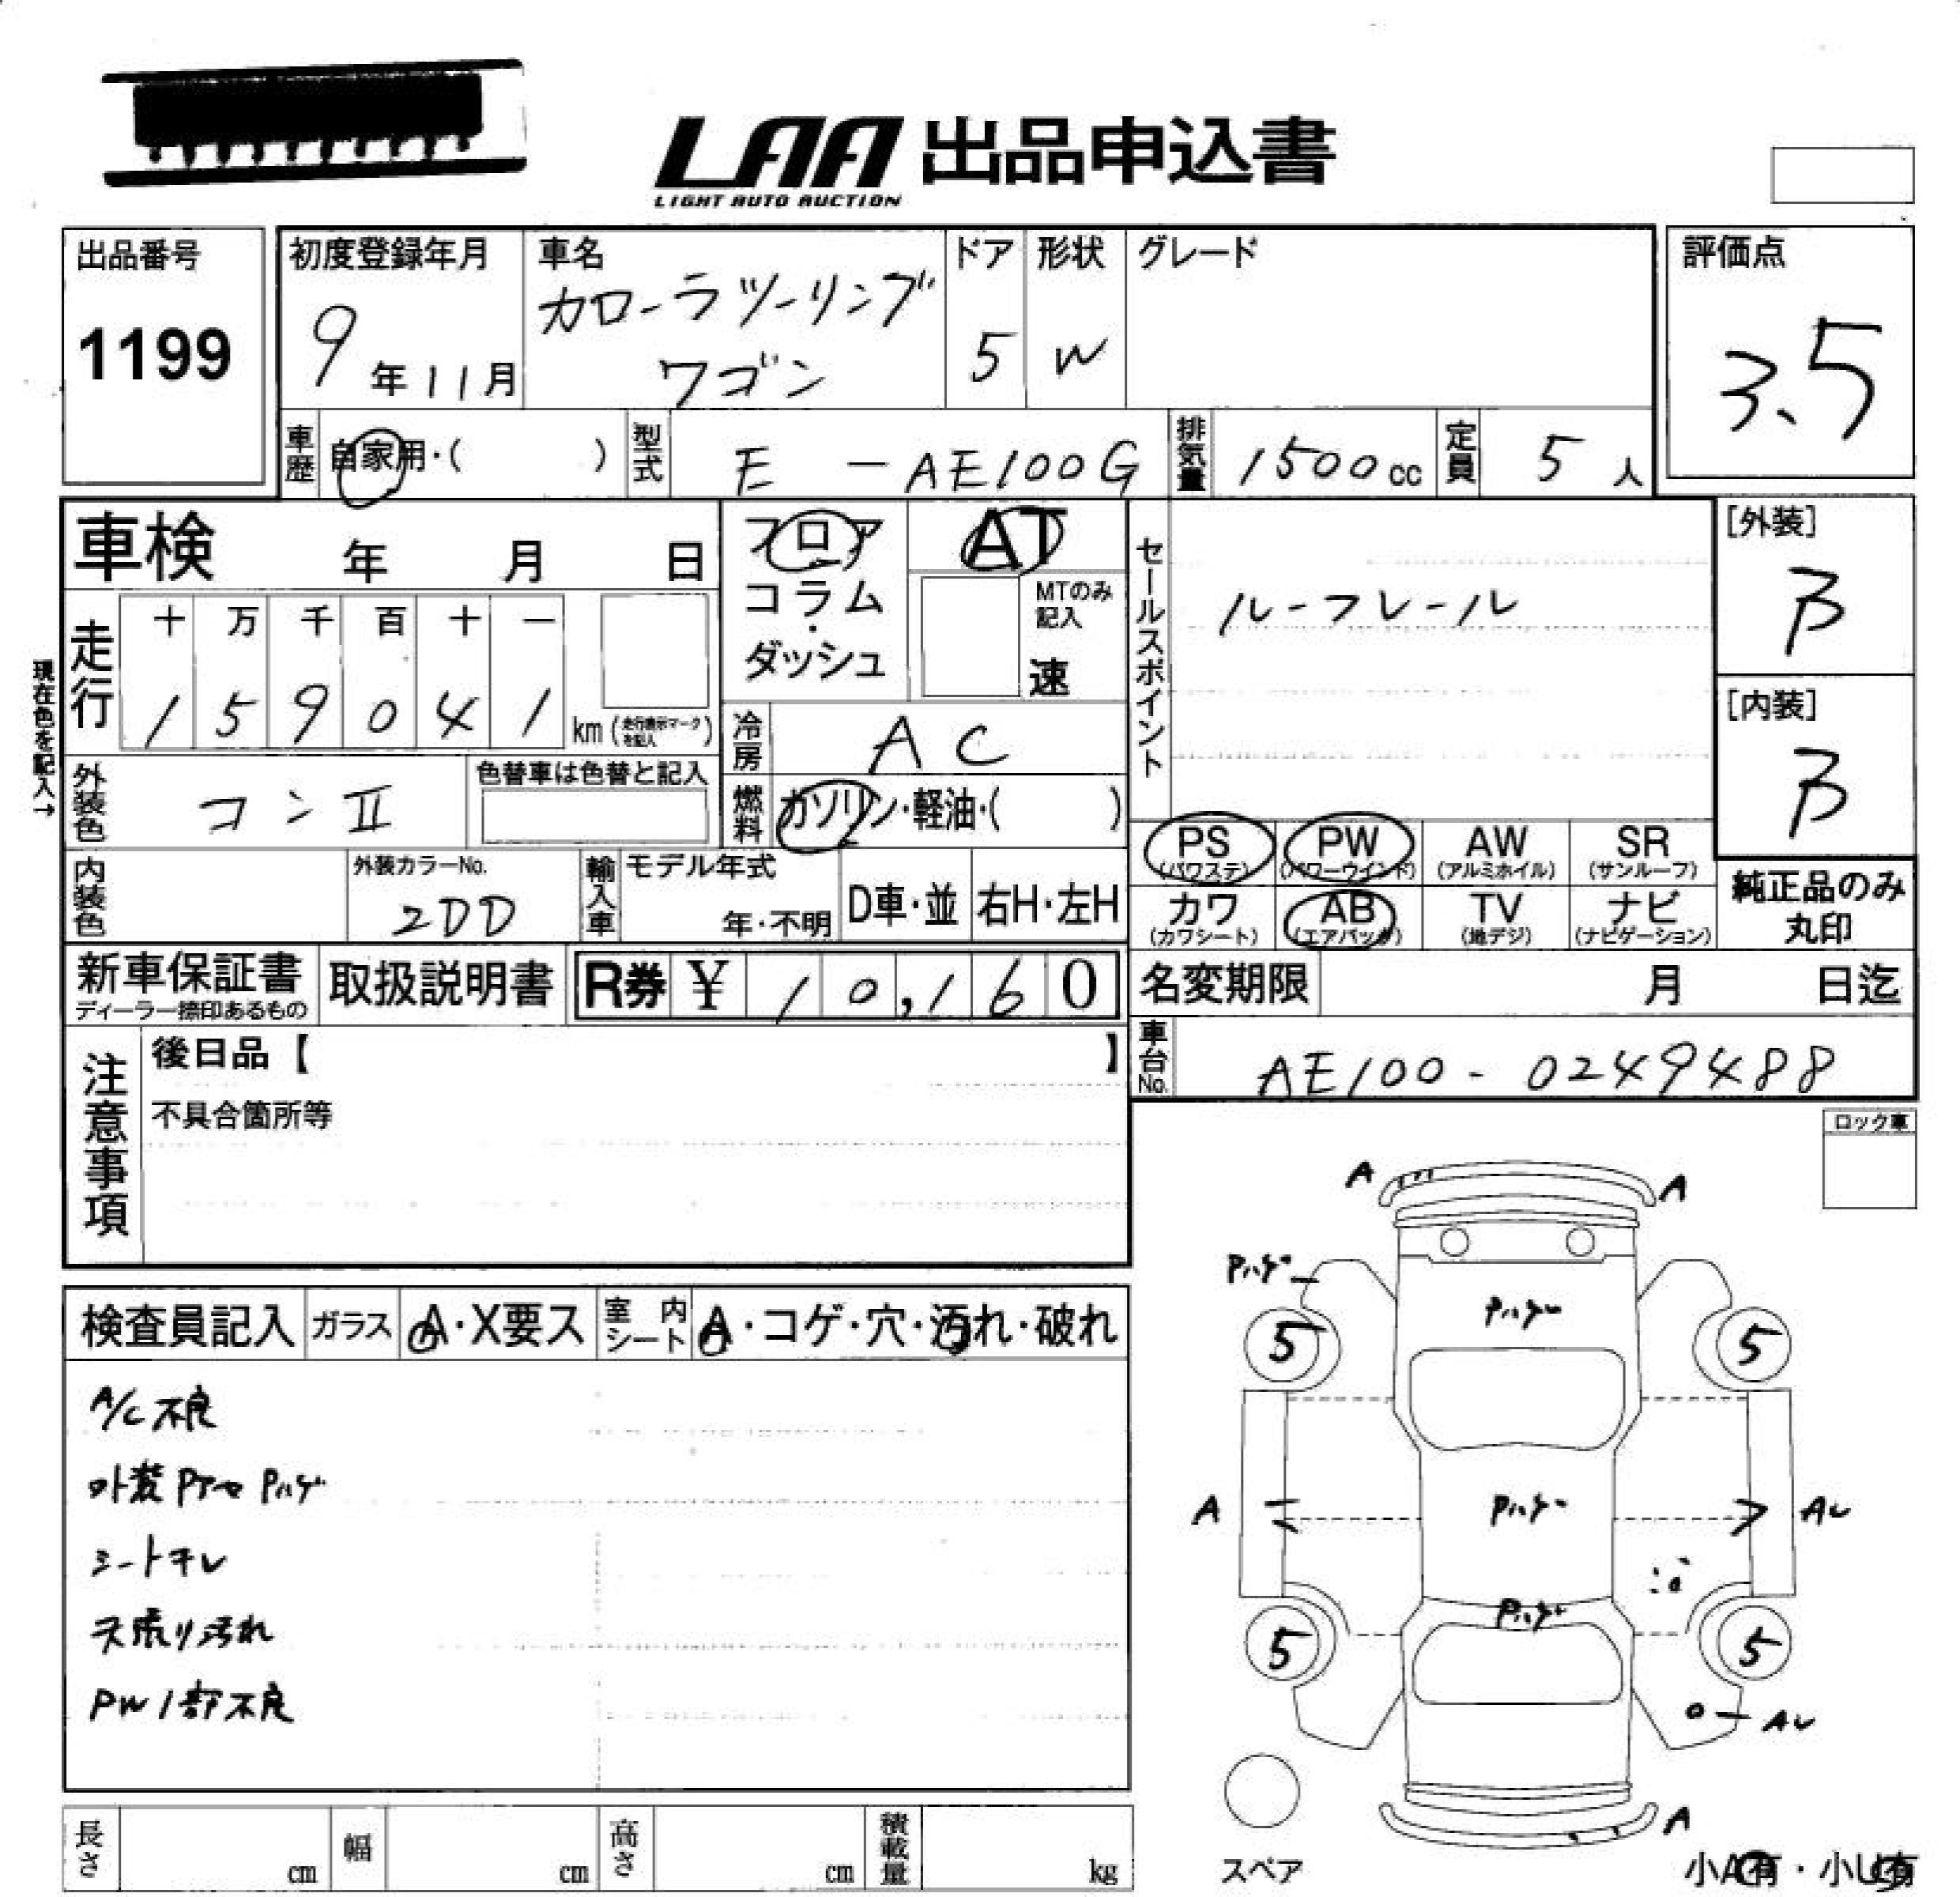 LAA 出品申込書
LIGHT AUTO AUCTION
出品番号
1199
初度登録年月
9年11月
車名
カローラツーリング
ワゴン
ドア
5
形状
W
グレード
評価点
3.5
車歴 自家用・( )
型式 E-AE100G
排気量 1500cc
定員 5人
車検 年 月 日
フロア
コラム・
ダッシュ
AT
MTのみ
記入
速
セールスポイント
ルーフレール
[外装]
B
[内装]
B
現在色を記入→
走行
十 万 千 百 十 一
1 5 9 0 4 1 km (走行表示マークを記入)
冷房 AC
外装色 コンⅡ
色替車は色替と記入
燃料 ガソリン・軽油・( )
PS (パワステ)
PW (パワーウインド)
AW (アルミホイル)
SR (サンルーフ)
カワ (カワシート)
AB (エアバッグ)
TV (地デジ)
ナビ (ナビゲーション)
純正品のみ
丸印
内装色
外装カラーNo.
2DD
輸入車
モデル年式
年・不明
D車・並
右H・左H
新車保証書
ディーラー捺印あるもの
取扱説明書
R券 ¥ 10,160
名変期限 月 日迄
車台No. AE100-0249488
注意事項
後日品【 】
不具合箇所等
ロック車
検査員記入 ガラス A・X要ス 室内シート A・コゲ・穴・汚れ・破れ
A/C不良
外装Pアセ Pハゲ
シートキレ
天張り汚れ
PW1部不良
A
A
Pハゲ
Pハゲ
5
5
A
Pハゲ
AU
Pハゲ
5
5
AU
A
スペア
小A有・小U有
長さ cm
幅 cm
高さ cm
積載量 kg